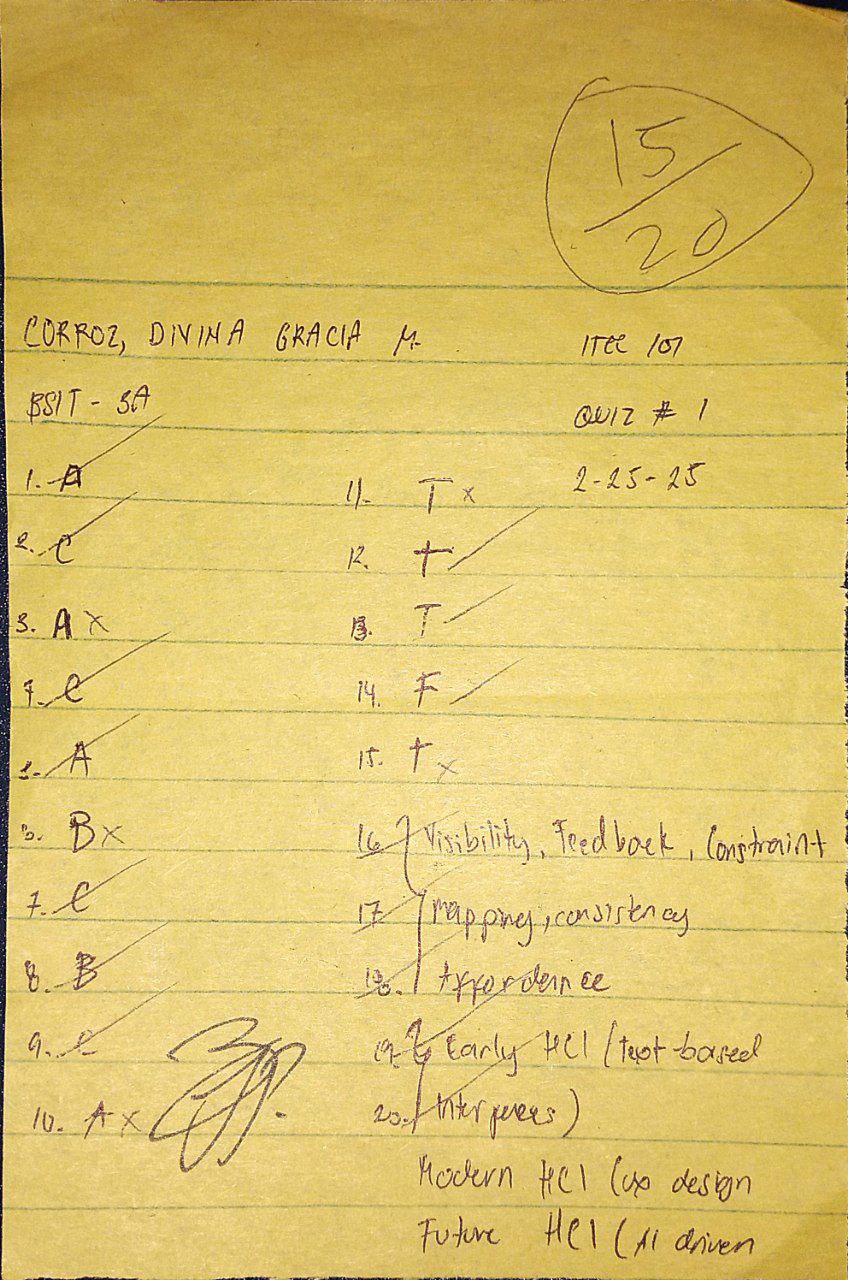 15/20
CORROZ, DIVINA GRACIA M. ITEC 101
BSIT - 3A QUIZ # 1
2-25-25
1. A
2. C
3. A x
4. C
5. A
6. B x
7. C
8. B
9. C
10. A x
11. T x
12. T
13. T
14. F
15. T x
16 Visibility, Feedback, Constraint
17 Mapping, consistency
18. Affordance
19. Early HCI (text-based
20. Interfaces)
Modern HCI (ux design
Future HCI (AI driven